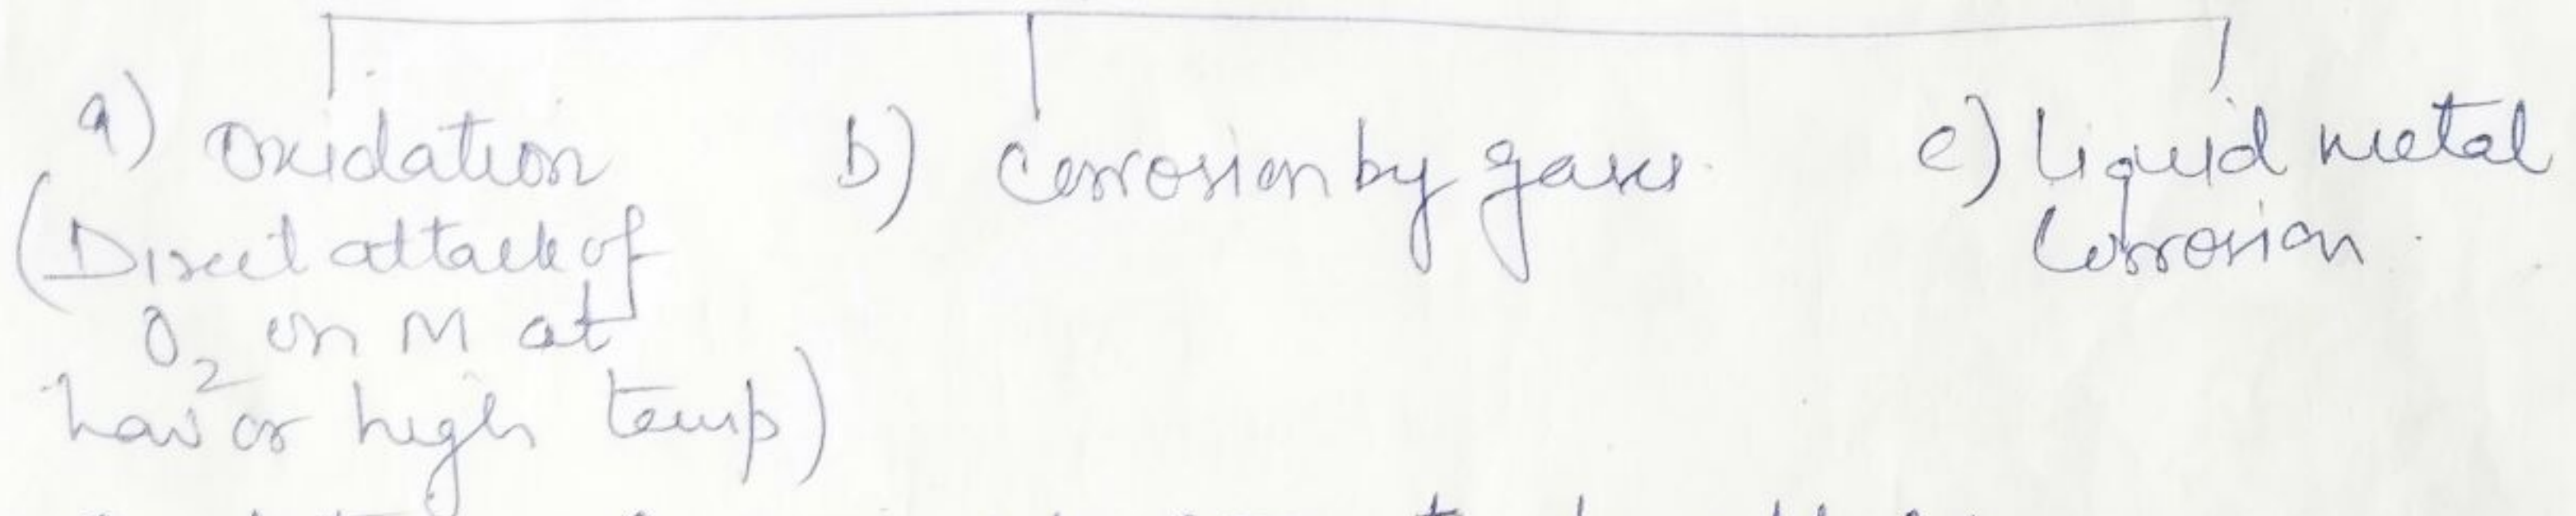 a) oxidation
(Direct attack of
O₂ on M at
low or high temp)
b) Corrosion by gases
c) Liquid metal
Corrosion.